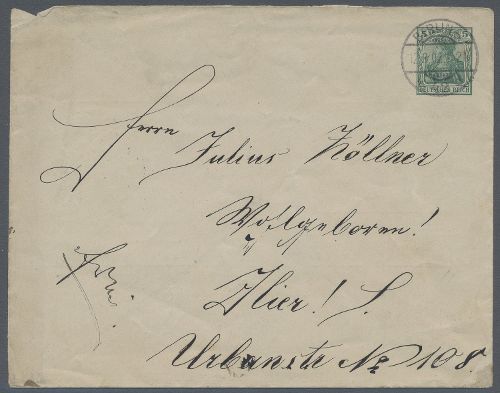 BERLIN S
DEUTSCHES REICH
Herrn
Julius Köllner
Wohlgeboren!
Frei.
Hier! S.
Urbanstr No 108.